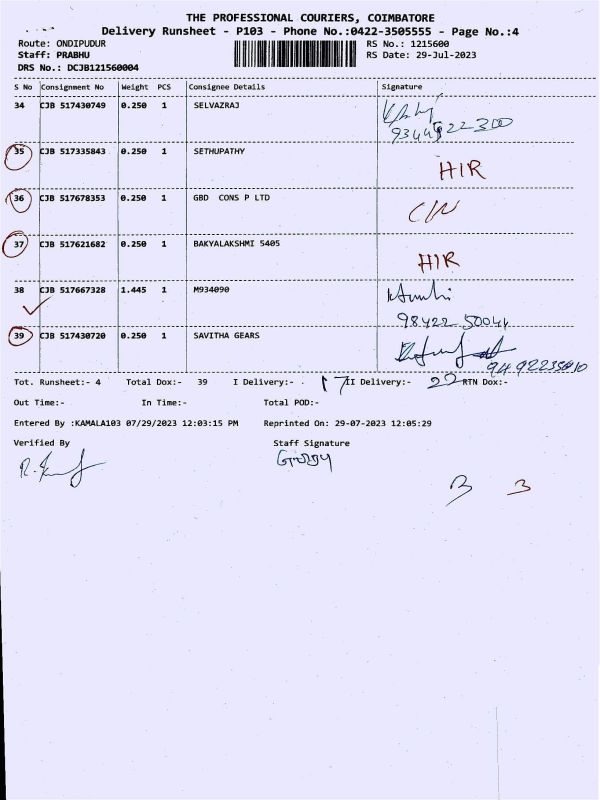 THE PROFESSIONAL COURIERS, COIMBATORE
Delivery Runsheet - P103 - Phone No.:0422-3505555 - Page No.:4
Route: ONDIPUDUR RS No.: 1215600
Staff: PRABHU RS Date: 29-Jul-2023
DRS No.: DCJB121560004
S No Consignment No Weight PCS Consignee Details Signature
34 CJB 517430749 0.250 1 SELVAZRAJ
35 CJB 517335843 0.250 1 SETHUPATHY
HIR
36 CJB 517678353 0.250 1 GBD CONS P LTD
37 CJB 517621682 0.250 1 BAKYALAKSHMI 5405
HIR
38 CJB 517667328 1.445 1 M934090
98422 50044
39 CJB 517430720 0.250 1 SAVITHA GEARS
Tot. Runsheet:- 4 Total Dox:- 39 I Delivery:- . 17 II Delivery:- 22 RTN Dox:-
Out Time:- In Time:- Total POD:-
Entered By :KAMALA103 07/29/2023 12:03:15 PM Reprinted On: 29-07-2023 12:05:29
Verified By Staff Signature
3